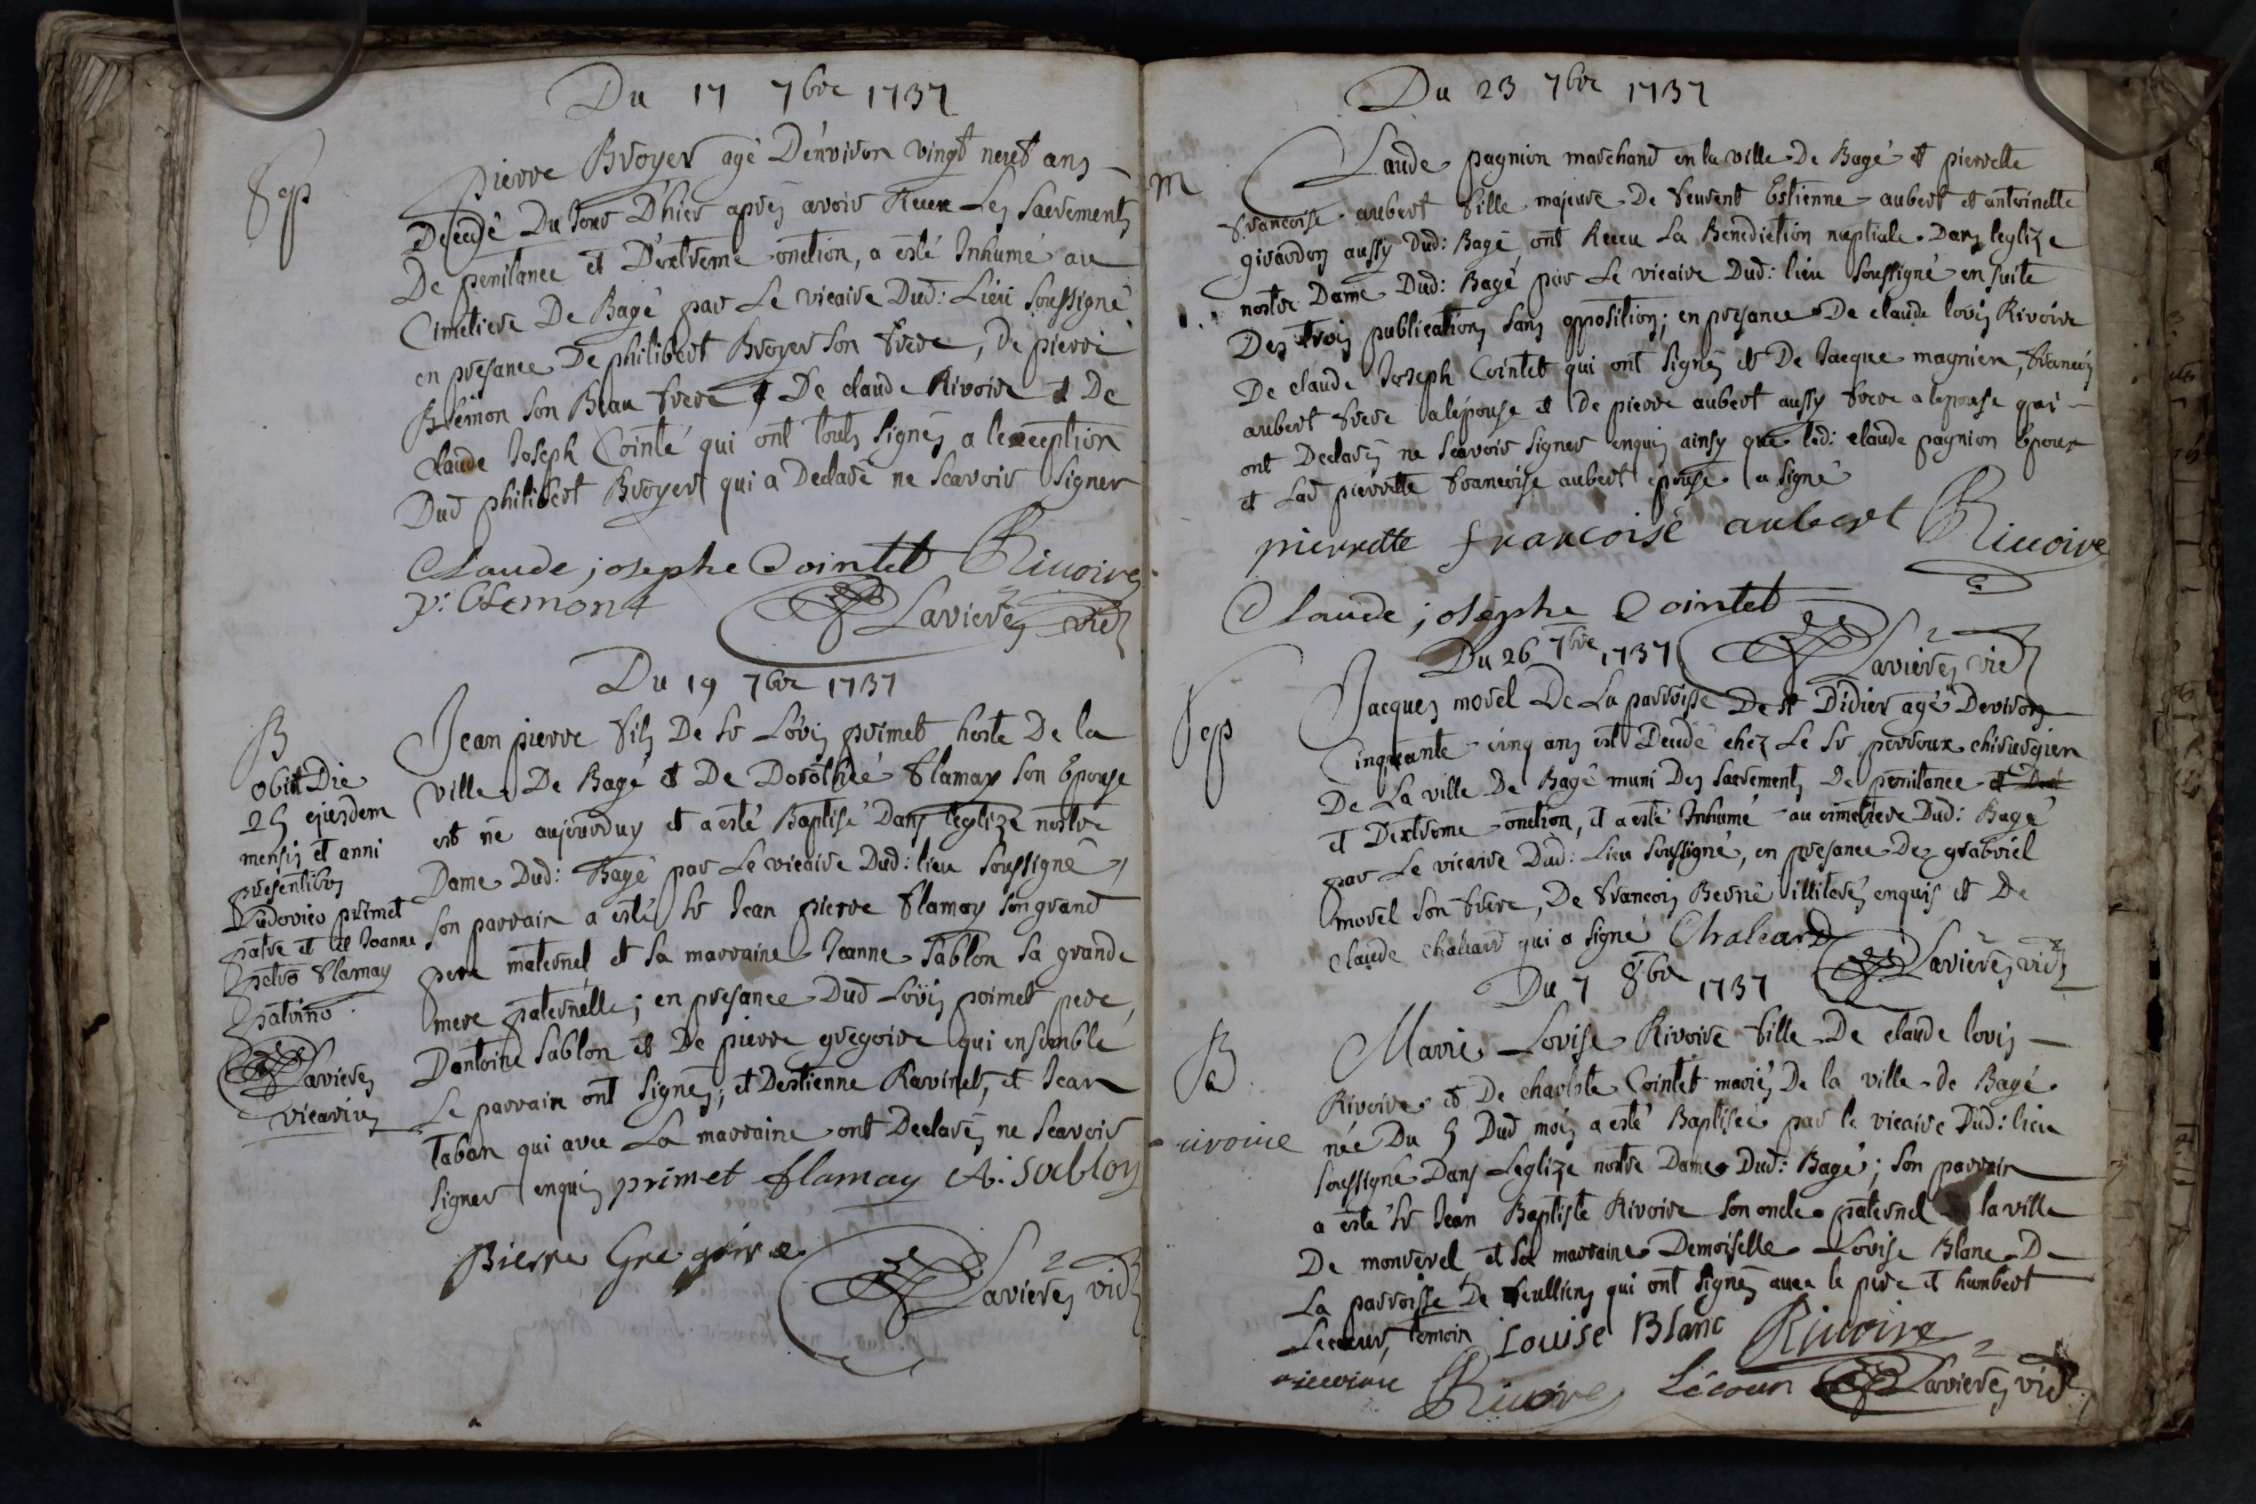 Du 17 7bre 1737
Sep
Pierre Broyer agé D'environ vingt neuf ans
Decedé Du Jour D'hier apres avoir Receu Les sacrements
De penitance et D'extreme onction, a esté Inhumé au
Cimetiere De Bagé par Le vicaire Dud: Lieu soussigné
en presance De philibert Broyer son frere, De pierre
son Beau frere et De claude Rivoire et De
claude Joseph Cointé qui ont touts signés a lexception
Dud philibert Broyer qui a Declaré ne scavoir signer
Claude josephe Cointet Rivoire
Lavieres vic
Du 19 7bre 1737
B
obiit Die
25 ejusdem
mensis et anni
presentibus
Ludovico primet
patre et Joanne
petro flamay
patrino
Lavieres
vicarius
Jean pierre fils De sr Loüis primet hoste De la
ville De Bagé et De Dorothée flamay son Epouse
est né aujourduy et a esté Baptisé Dans leglize nostre
Dame Dud: Bagé par Le vicaire Dud: lieu soussigné
son parrain a esté sr Jean pierre flamay son grand
pere maternel et sa marraine Jeanne sablon sa grande
mere paternelle; en presance Dud Loüis primet pere,
Dantoine sablon et De pierre gregoire qui ensemble
Le parrain ont signés; et Destienne Ravinet, et Jean
Taban qui avec La marraine ont Declarés ne scavoir
signer enquis primet flamay A. Sablon
Pierre Gregoire
Lavieres vic
Du 23 7bre 1737
M
Claude pagnion marchand en la ville De Bagé et pierrette
francoise aubert fille majeure De feurent Estienne aubert et antoinette
girardon aussy Dud: Bagé, ont Receu La Benediction nuptiale Dans leglize
nostre Dame Dud: Bagé par Le vicaire Dud: lieu soussigné en suite
Des trois publications sans opposition; en presance De claude loüis Rivoire
De claude Joseph Cointet qui ont signés et De Jacque magnien, francois
aubert frere a lépouse et De pierre aubert aussy frere a lepouse qui
ont Declarés ne scavoir signer enquis ainsy que led: claude pagnion Epoux
et Lad pierrette francoise aubert epouse a signé
pierrette francoise aubert Rivoire
Claude josephe Cointet
Lavieres vic
Du 26 7bre 1737
Sep
Jacques morel De La parroisse De st Didier agé Deviron
Cinquante cinq ans est Decedé chez Le sr perroux chirurgien
De La ville De Bagé muni Des sacrements De penitance
et Dextreme onction, et a esté Inhumé au cimetiere Dud: Bagé
par Le vicaire Dud: Lieu soussigné, en presance De gabriel
morel son frere, De francois illiterés enquis et De
claude chaliard qui a signé Chaliard
Lavieres vic
Du 7 8bre 1737
B
Marie Loüise Rivoire fille De claude loüis
Rivoire et De charlote Cointet mariés De la ville de Bagé
née Du 5 Dud mois a esté Baptisée par le vicaire Dud: lieu
soussigné Dans Leglize nostre Dame Dud: Bagé; son parrain
a esté sr Jean Baptiste Rivoire son oncle paternel la ville
De montrevel et sa marraine Demoiselle Loüise Blanc De
La parroisse De feulliens qui ont signés avec le pere et humbert
Lecoeur, temoin Louise Blanc Rivoire
Rivoire Lecoeur Lavieres vic